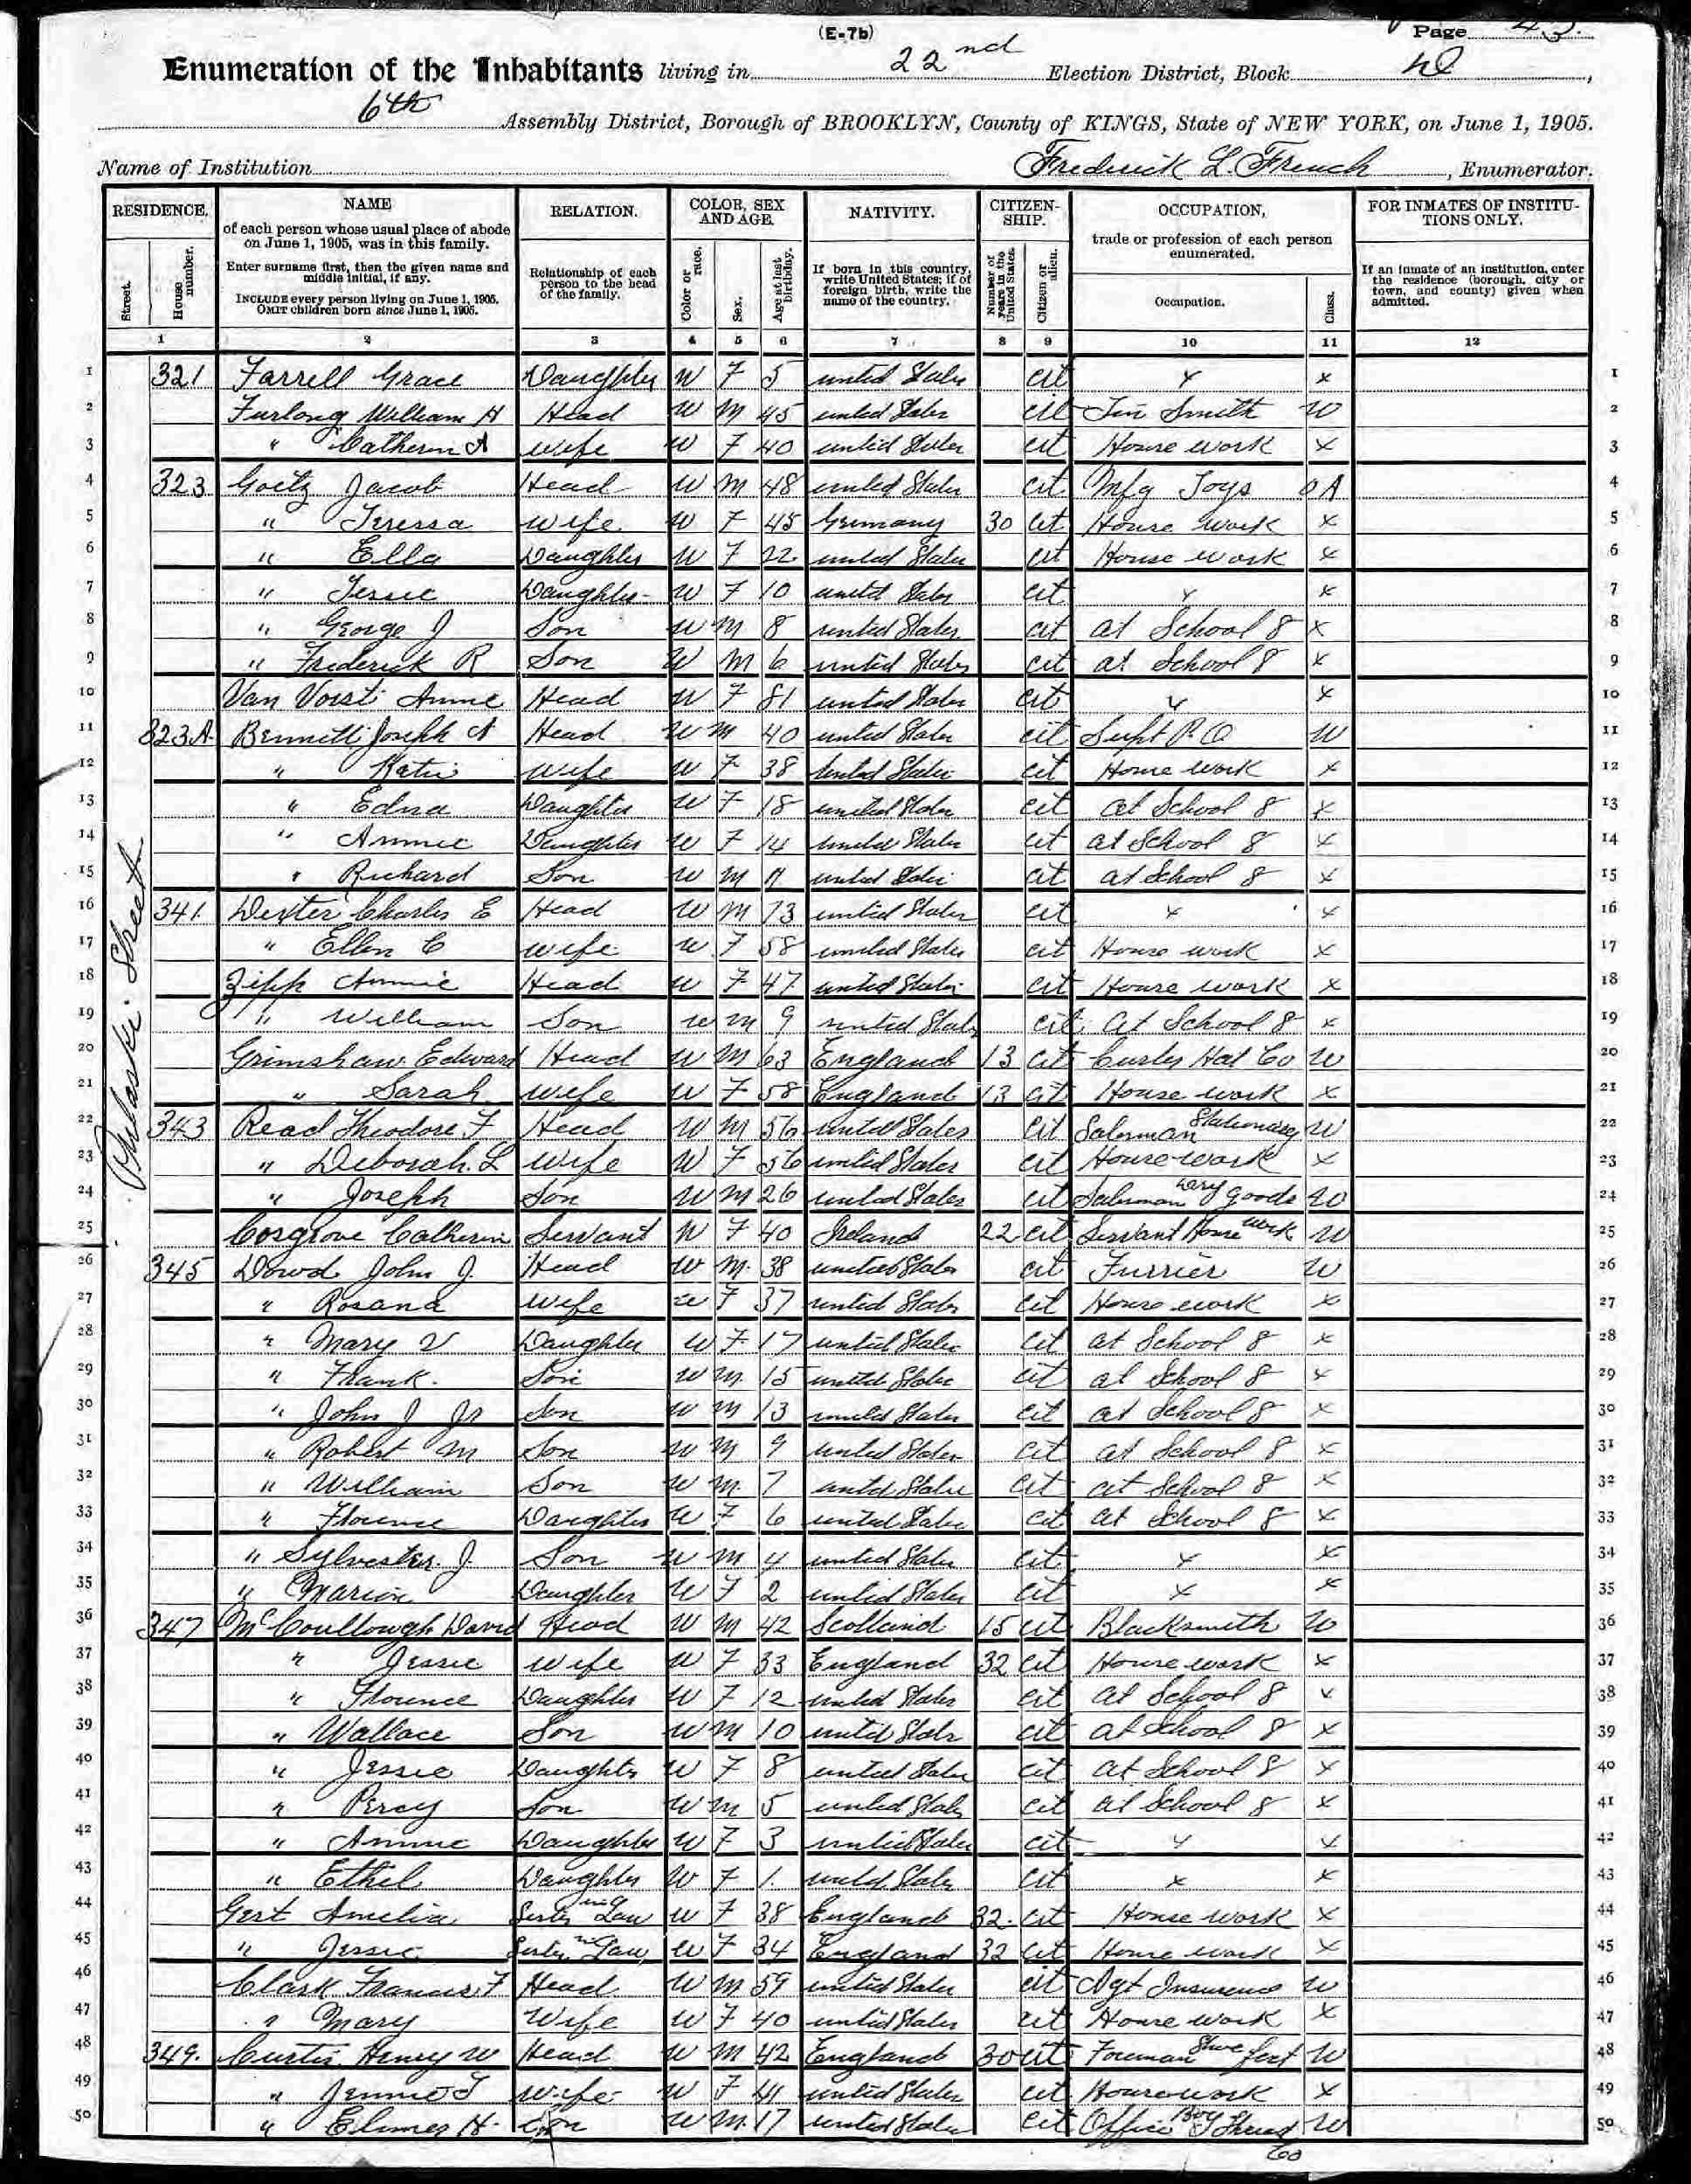 (E-7b)
Page 43.
Enumeration of the Inhabitants living in 22nd Election District, Block
6th Assembly District, Borough of BROOKLYN, County of KINGS, State of NEW YORK, on June 1, 1905.
Name of Institution Frederick L. French, Enumerator.
RESIDENCE. NAME RELATION. COLOR, SEX AND AGE. NATIVITY. CITIZEN-SHIP. OCCUPATION, FOR INMATES OF INSTITU-TIONS ONLY.
Street. House number. of each person whose usual place of abode on June 1, 1905, was in this family. Enter surname first, then the given name and middle initial, if any. INCLUDE every person living on June 1, 1905. OMIT children born since June 1, 1905. Relationship of each person to the head of the family. Color or race. Sex. Age at last birthday. If born in this country, write United States; if of foreign birth, write the name of the country. Number of years in the United States. Citizen or alien. trade or profession of each person enumerated. Occupation. Class. If an inmate of an institution, enter the residence (borough, city or town, and county) given when admitted.
1 2 3 4 5 6 7 8 9 10 11 12
Pulaski Street
1 321 Farrell Grace Daughter W F 5 united States cit x x 1
2 Furlong William H Head W M 45 united States cit Tin Smith W 2
3 " Catherin A wife W F 40 united States cit House work x 3
4 323 Goetz Jacob Head W M 48 united States cit Mfg Toys O A 4
5 " Teressa wife W F 45 Germany 30 cit House work x 5
6 " Ella Daughter W F 22 united States cit House work x 6
7 " Jessie Daughter W F 10 united States cit x x 7
8 " George J Son W M 8 united States cit at School 8 x 8
9 " Frederick R Son W M 6 united States cit at School 8 x 9
10 Van Vorst Annie Head W F 81 united States cit x x 10
11 323A Bennett Joseph A Head W M 40 united States cit Supt P.O W 11
12 " Katie wife W F 38 united States cit House work x 12
13 " Edna Daughter W F 18 united States cit at School 8 x 13
14 " Annie Daughter W F 14 united States cit at School 8 x 14
15 " Richard Son W M united States cit at School 8 x 15
16 341 Dexter Charles E Head W M 73 united States cit x x 16
17 " Ellen C wife W F 58 united States cit House work x 17
18 Zipp Annie Head W F 47 united States cit House work x 18
19 " William Son W M 9 united States cit at School 8 x 19
20 Grimshaw Edward Head W M 63 England 13 cit Curler Hat Co W 20
21 " Sarah wife W F 58 England 13 cit House work x 21
22 343 Read Theodore F Head W M 56 united States cit Salesman Stationary W 22
23 " Deborah L wife W F 56 united States cit House work x 23
24 " Joseph Son W M 26 united States cit Salesman Dry Goods W 24
25 Cosgrove Catherin Servant W F 40 Ireland 22 cit Servant House work W 25
26 345 Dowd John J. Head W M 38 united States cit Furrier W 26
27 " Rosana wife W F 37 united States cit House work x 27
28 " Mary V Daughter W F 17 united States cit at School 8 x 28
29 " Frank Son W M 15 united States cit at School 8 x 29
30 " John J Jr Son W M 13 united States cit at School 8 x 30
31 " Robert M Son W M 9 united States cit at School 8 x 31
32 " William Son W M 7 united States cit at School 8 x 32
33 " Florence Daughter W F 6 united States cit at School 8 x 33
34 " Sylvester J. Son W M 4 united States cit x x 34
35 " Marion Daughter W F 2 united States cit x x 35
36 347 McCoullough David Head W M 42 Scotland 15 cit Blacksmith W 36
37 " Jessie wife W F 33 England 32 cit House work x 37
38 " Florence Daughter W F 12 united States cit at School 8 x 38
39 " Wallace Son W M 10 united States cit at School 8 x 39
40 " Jessie Daughter W F 8 united States cit at School 8 x 40
41 " Percy Son W M 5 united States cit at School 8 x 41
42 " Annie Daughter W F 3 united States cit x x 42
43 " Ethel Daughter W F 1 united States cit x x 43
44 Gert Amelia Sister in Law W F 38 England 32 cit House work x 44
45 " Jessie Sister in Law W F 34 England 32 cit House work x 45
46 Clark Frances F Head W M 59 united States cit Agt Insurence W 46
47 " Mary Wife W F 40 united States cit House work x 47
48 349 Curtis Henry W Head W M 42 England 30 cit Foreman Shoe fact W 48
49 " Jennie T wife W F 41 united States cit House work x 49
50 " Elmer H Son W M 17 united States cit Office Boy Thread Co W 50